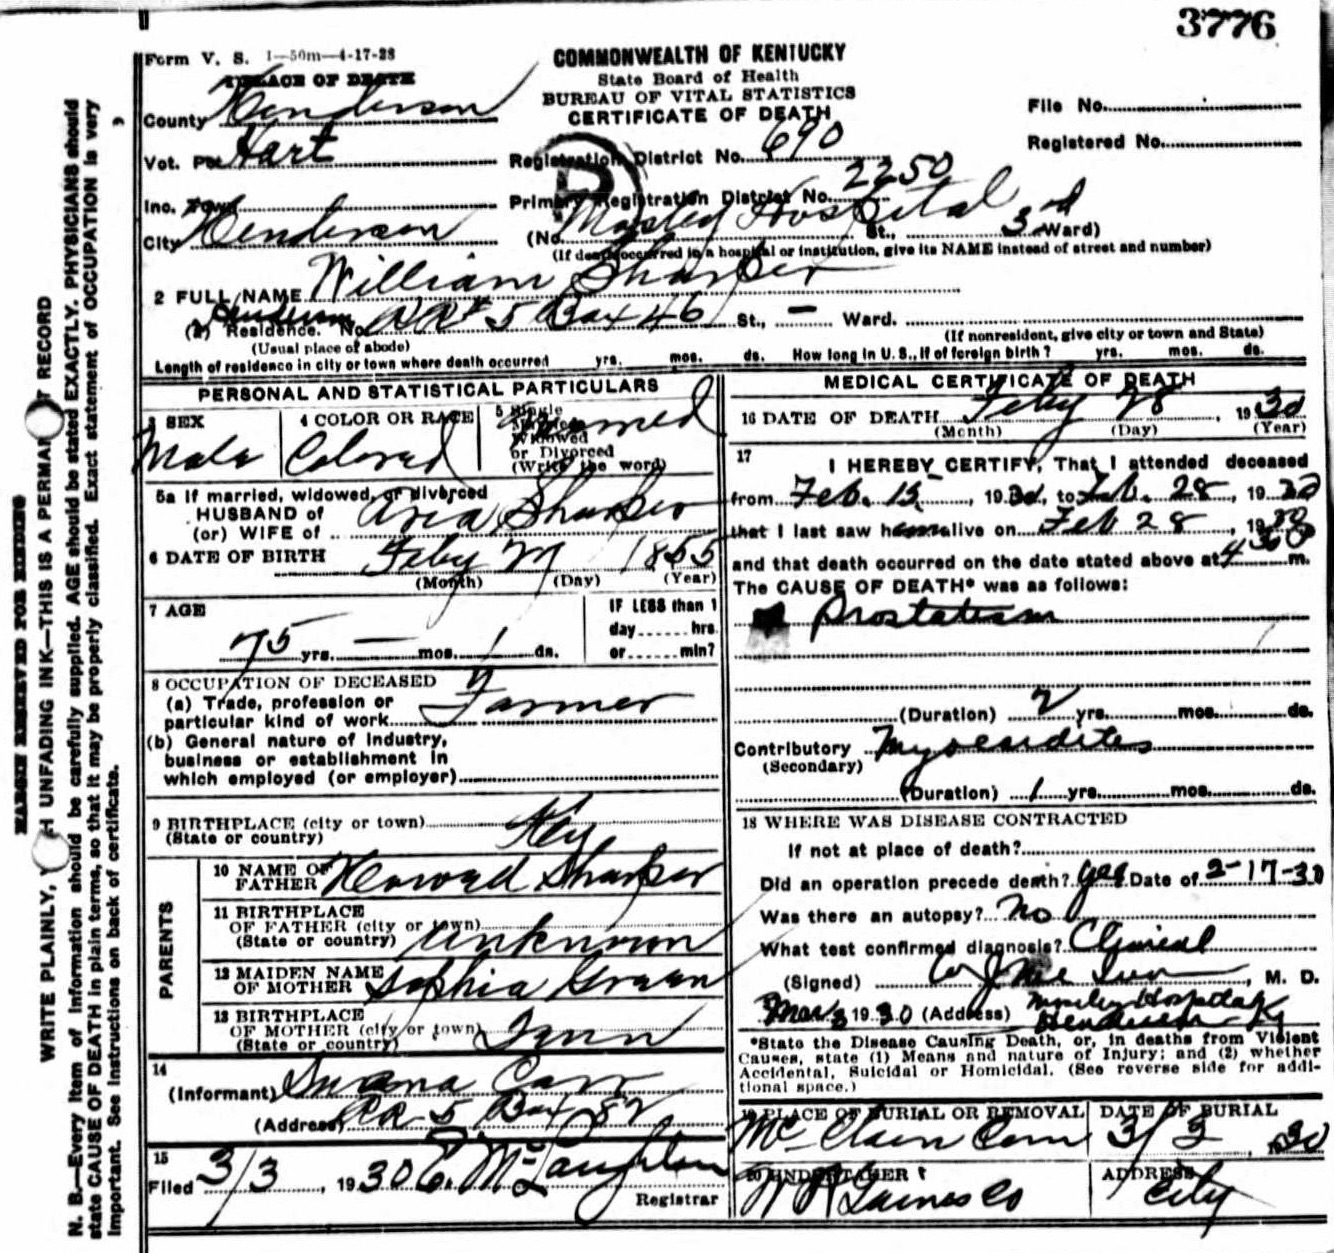 3776
Form V. S. 1—50m—4-17-28
COMMONWEALTH OF KENTUCKY
State Board of Health
BUREAU OF VITAL STATISTICS
CERTIFICATE OF DEATH
1 PLACE OF DEATH
County Henderson
File No.
Vot. Pct. Hart
Registration District No. 690
Registered No.
Inc. Town
Primary Registration District No. 2250
City Henderson
(No. Hospital St., 3rd Ward)
(If death occurred in a hospital or institution, give its NAME instead of street and number)
2 FULL NAME William Sharper
(a) Residence. No. Henderson RR# 5 Box 46 St., — Ward.
(Usual place of abode)
(If nonresident, give city or town and State)
Length of residence in city or town where death occurred yrs. mos. ds. How long in U. S., if of foreign birth? yrs. mos. ds.
PERSONAL AND STATISTICAL PARTICULARS
3 SEX
Male
4 COLOR OR RACE
Colored
5 Single
Married
Widowed
or Divorced
(Write the word)
Married
5a If married, widowed, or divorced
HUSBAND of
(or) WIFE of
Sharper
6 DATE OF BIRTH Feby 27 1855
(Month) (Day) (Year)
7 AGE
75 yrs. — mos. 1 ds.
IF LESS than 1
day hrs.
or min?
8 OCCUPATION OF DECEASED
(a) Trade, profession or
particular kind of work Farmer
(b) General nature of industry,
business or establishment in
which employed (or employer)
9 BIRTHPLACE (city or town)
(State or country) Ky
PARENTS
10 NAME OF
FATHER Howard Sharper
11 BIRTHPLACE
OF FATHER (city or town)
(State or country) Unknown
12 MAIDEN NAME
OF MOTHER Sophia
13 BIRTHPLACE
OF MOTHER (city or town)
(State or country) Tenn
14
(Informant) Carr
(Address) RR 5 Box 82
15
Filed 3/3, 1930 McLaughlin
Registrar
MEDICAL CERTIFICATE OF DEATH
16 DATE OF DEATH Feby 28, 1930
(Month) (Day) (Year)
17
I HEREBY CERTIFY, That I attended deceased
from Feb. 15, 1930, to Feb. 28, 1930
that I last saw him alive on Feb 28, 1930
and that death occurred on the date stated above at 4 30 m.
The CAUSE OF DEATH* was as follows:
Prostatism
(Duration) 2 yrs. mos. ds.
Contributory Myocarditis
(Secondary)
(Duration) 1 yrs. mos. ds.
18 WHERE WAS DISEASE CONTRACTED
If not at place of death?
Did an operation precede death? yes Date of 2-17-30
Was there an autopsy? No
What test confirmed diagnosis? Clinical
(Signed) , M. D.
Mar 3 1930 (Address) Hospital
Henderson Ky
*State the Disease Causing Death, or, in deaths from Violent
Causes, state (1) Means and nature of Injury; and (2) whether
Accidental, Suicidal or Homicidal. (See reverse side for addi-
tional space.)
19 PLACE OF BURIAL OR REMOVAL
McClain Cem
DATE OF BURIAL
3/3, 1930
20 UNDERTAKER
Co
ADDRESS
City
MARGIN RESERVED FOR BINDING
WRITE PLAINLY, WITH UNFADING INK—THIS IS A PERMANENT RECORD
N. B.—Every item of information should be carefully supplied. AGE should be stated EXACTLY. PHYSICIANS should
state CAUSE OF DEATH in plain terms, so that it may be properly classified. Exact statement of OCCUPATION is very
important. See instructions on back of certificate.